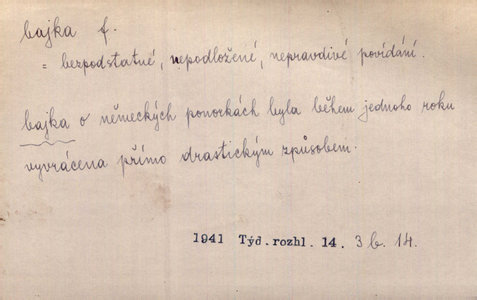 bajka f.
= bezpodstatné, nepodložené, nepravdivé povídání.
bajka o německých ponorkách byla během jednoho roku
vyvrácena přímo drastickým způsobem.
1941 Týd. rozhl. 14. 3 b. 14.